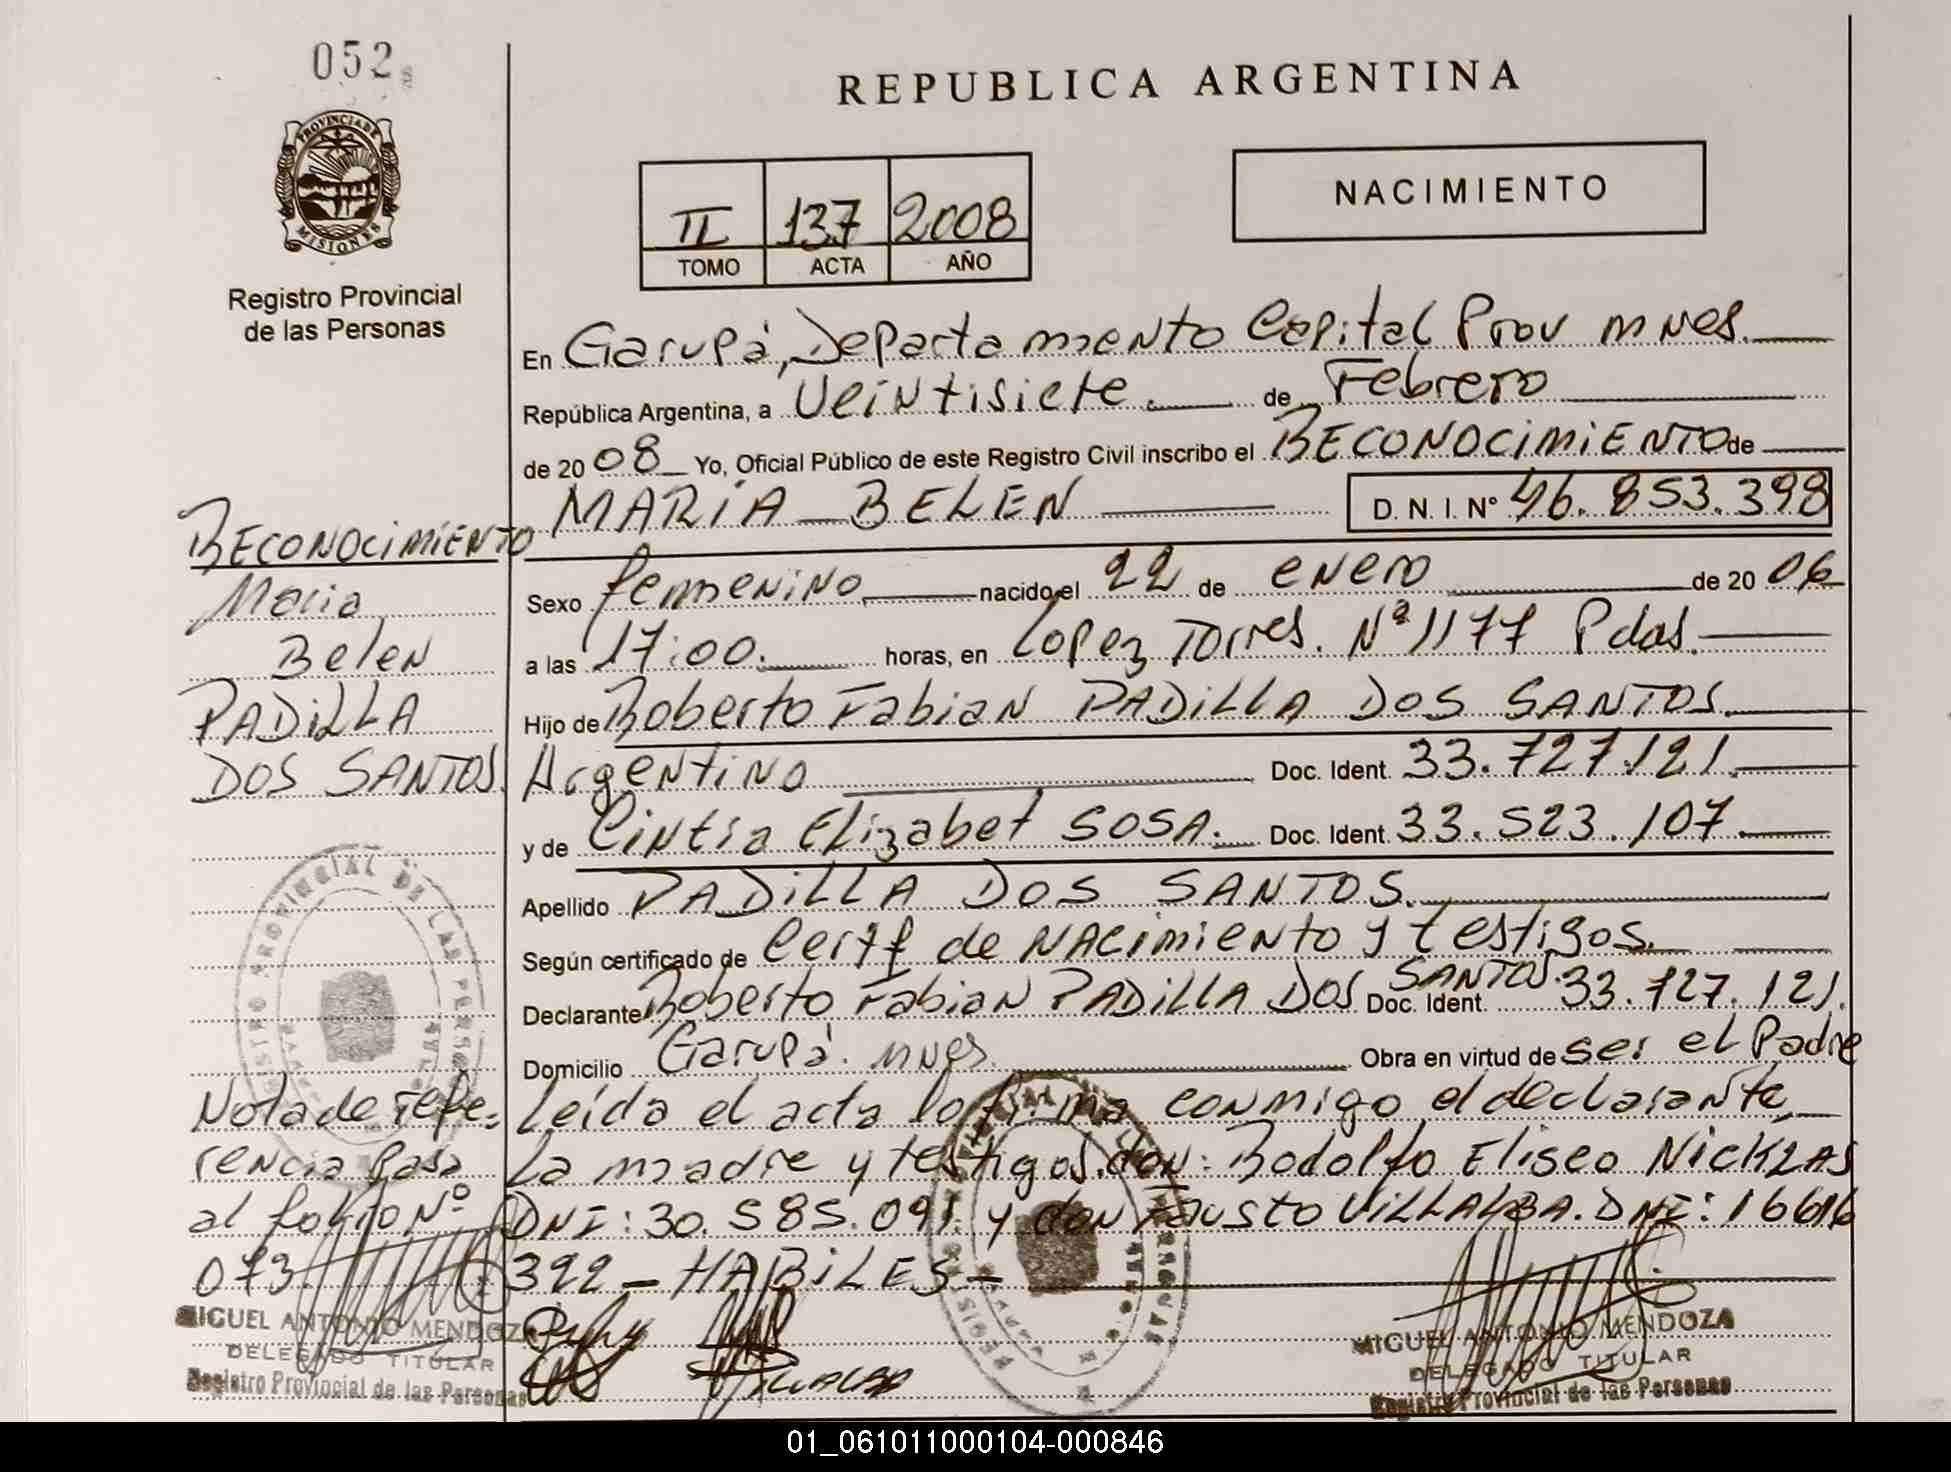 052
REPUBLICA ARGENTINA
PROVINCIA DE
MISIONES
Registro Provincial
de las Personas
II 137 2008
TOMO ACTA AÑO
NACIMIENTO
En Garupá, Departamento Capital Prov mnes.
República Argentina, a Veintisiete. de Febrero
de 2008 Yo, Oficial Público de este Registro Civil inscribo el RECONOCIMIENTO de
MARIA BELEN D. N. I. Nº 46.853.398
Sexo femenino nacido el 22 de enero de 2006
a las 17:00. horas, en Lopez Torres. Nº 1177 Pdas.
Hijo de Roberto Fabian PADILLA DOS SANTOS.
Argentino Doc. Ident. 33.727.121.
y de Cintia Elizabet SOSA. Doc. Ident. 33.523.107.
Apellido PADILLA DOS SANTOS.
Según certificado de Certf de NACIMIENTO y testigos.
Declarante Roberto Fabian PADILLA DOS SANTOS. Doc. Ident. 33.727.121.
Domicilio Garupá. mnes. Obra en virtud de ser el Padre
Leída el acta la firma conmigo el declarante,
La madre y testigos. don: Rodolfo Eliseo NICKLAS
DNI: 30.585.091. y don Fausto VILLALBA. DNI: 16616
392 - HABILES -
RECONOCIMIENTO
Maria
Belen
PADILLA
DOS SANTOS.
Nota de refe-
rencia pasa
al folio Nº
073
MIGUEL ANTONIO MENDOZA
DELEGADO TITULAR
Registro Provincial de las Personas
MIGUEL ANTONIO MENDOZA
DELEGADO TITULAR
Registro Provincial de las Personas
01_061011000104-000846